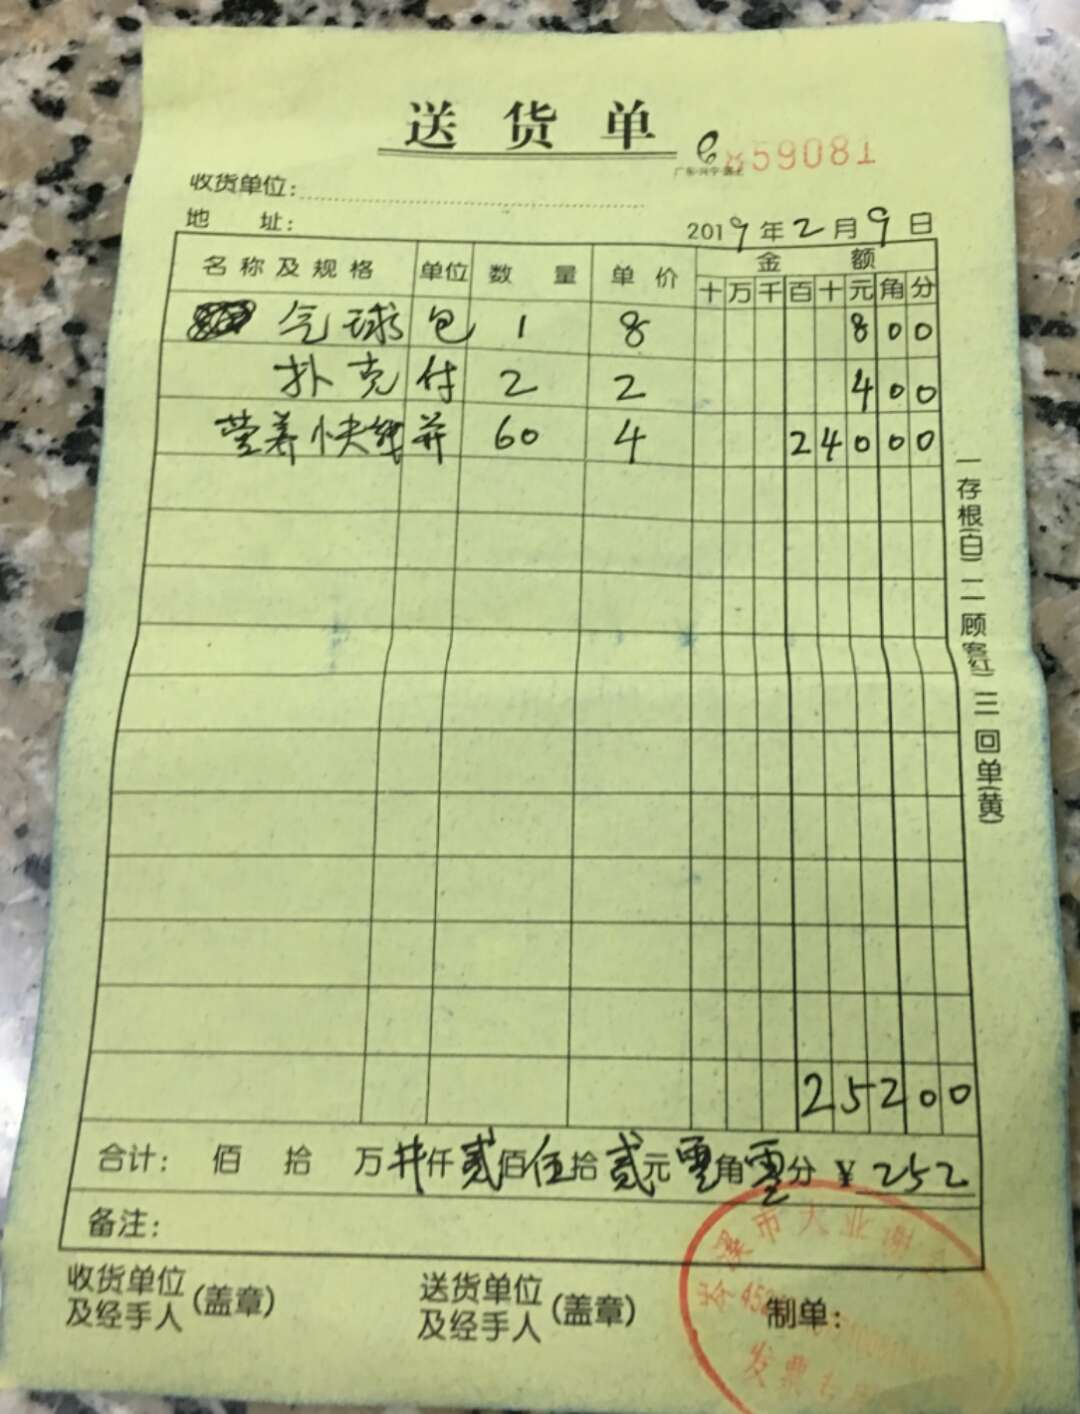 送货单
859081
收货单位：
地 址：
2019年2月9日
名称及规格 单位 数量 单价 金额
十 万 千 百 十 元 角 分
气球 包 1 8 8 0 0
扑克 付 2 2 4 0 0
营养快线 并 60 4 2 4 0 0 0
2 5 2 0 0
合计： 佰 拾 万 井仟贰佰伍拾贰元零角零分 ￥252
备注：
收货单位及经手人(盖章) 送货单位及经手人(盖章) 制单：
一存根(白) 二顾客(红) 三回单(黄)
岑溪市大业谢
发票专